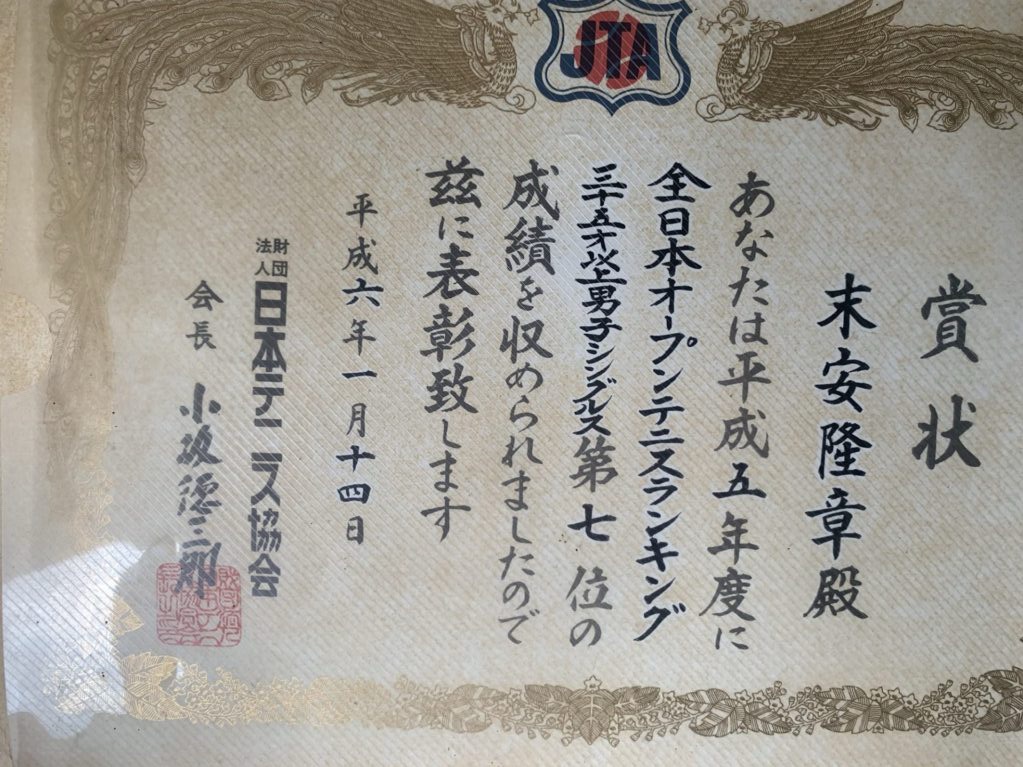 JTA
賞状
末安隆章殿
あなたは平成五年度に
全日本オープンテニスランキング
三十五才以上男子シングルス第七位の
成績を収められましたので
茲に表彰致します
平成六年一月十四日
財団法人日本テニス協会
会長 小坂徳三郎